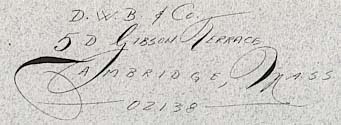 D. W. B & Co.
5 D GIBSON TERRACE
CAMBRIDGE, MASS
02138